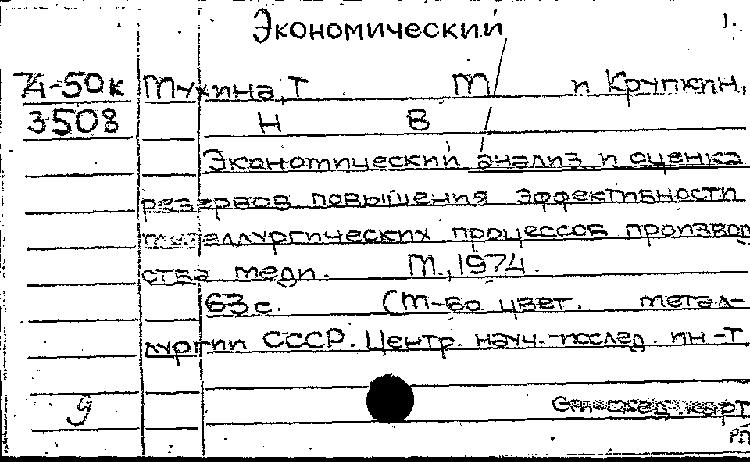 Экономический
1.
74-50к Мухина, Т М и Крупкин,
3508 Н В
Экономический анализ и оценка
резервов повышения эффективности
металлургических процессов производ
ства меди. М., 1974.
63 с. (М-во цвет. метал-
лургии СССР. Центр. науч.-исслед. ин-т
9
См. след. карт